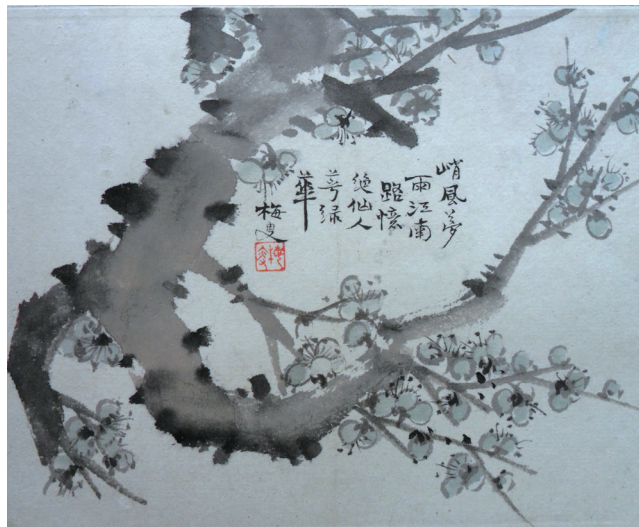 峭風夢
雨江南
路憶
絶仙人
萼緑
華
梅叟